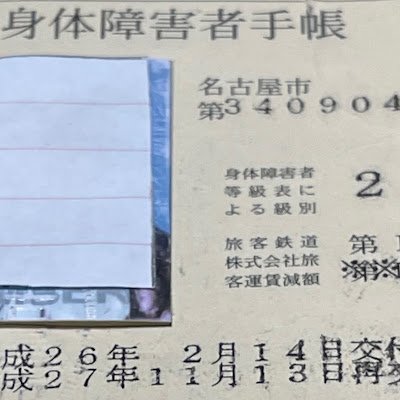 身体障害者手帳
名古屋市
第340904
身体障害者
等級表に
よる級別
2
旅客鉄道
株式会社旅
客運賃減額
第
成26年 2月14日交付
成27年11月13日再交